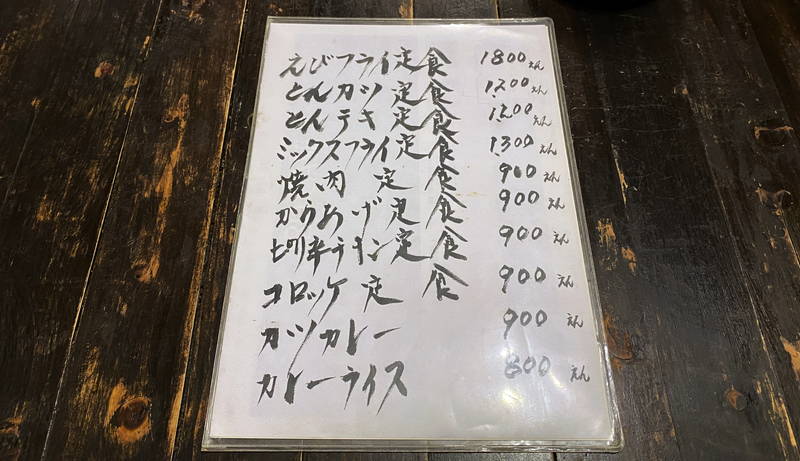 えびフライ定食 1800えん
とんカツ定食 1200えん
とんテキ定食 1200えん
ミックスフライ定食 1300えん
焼肉定食 900
からあげ定食 900
ピリ辛チキン定食 900えん
コロッケ定食 900えん
カツカレー 900えん
カレーライス 800えん